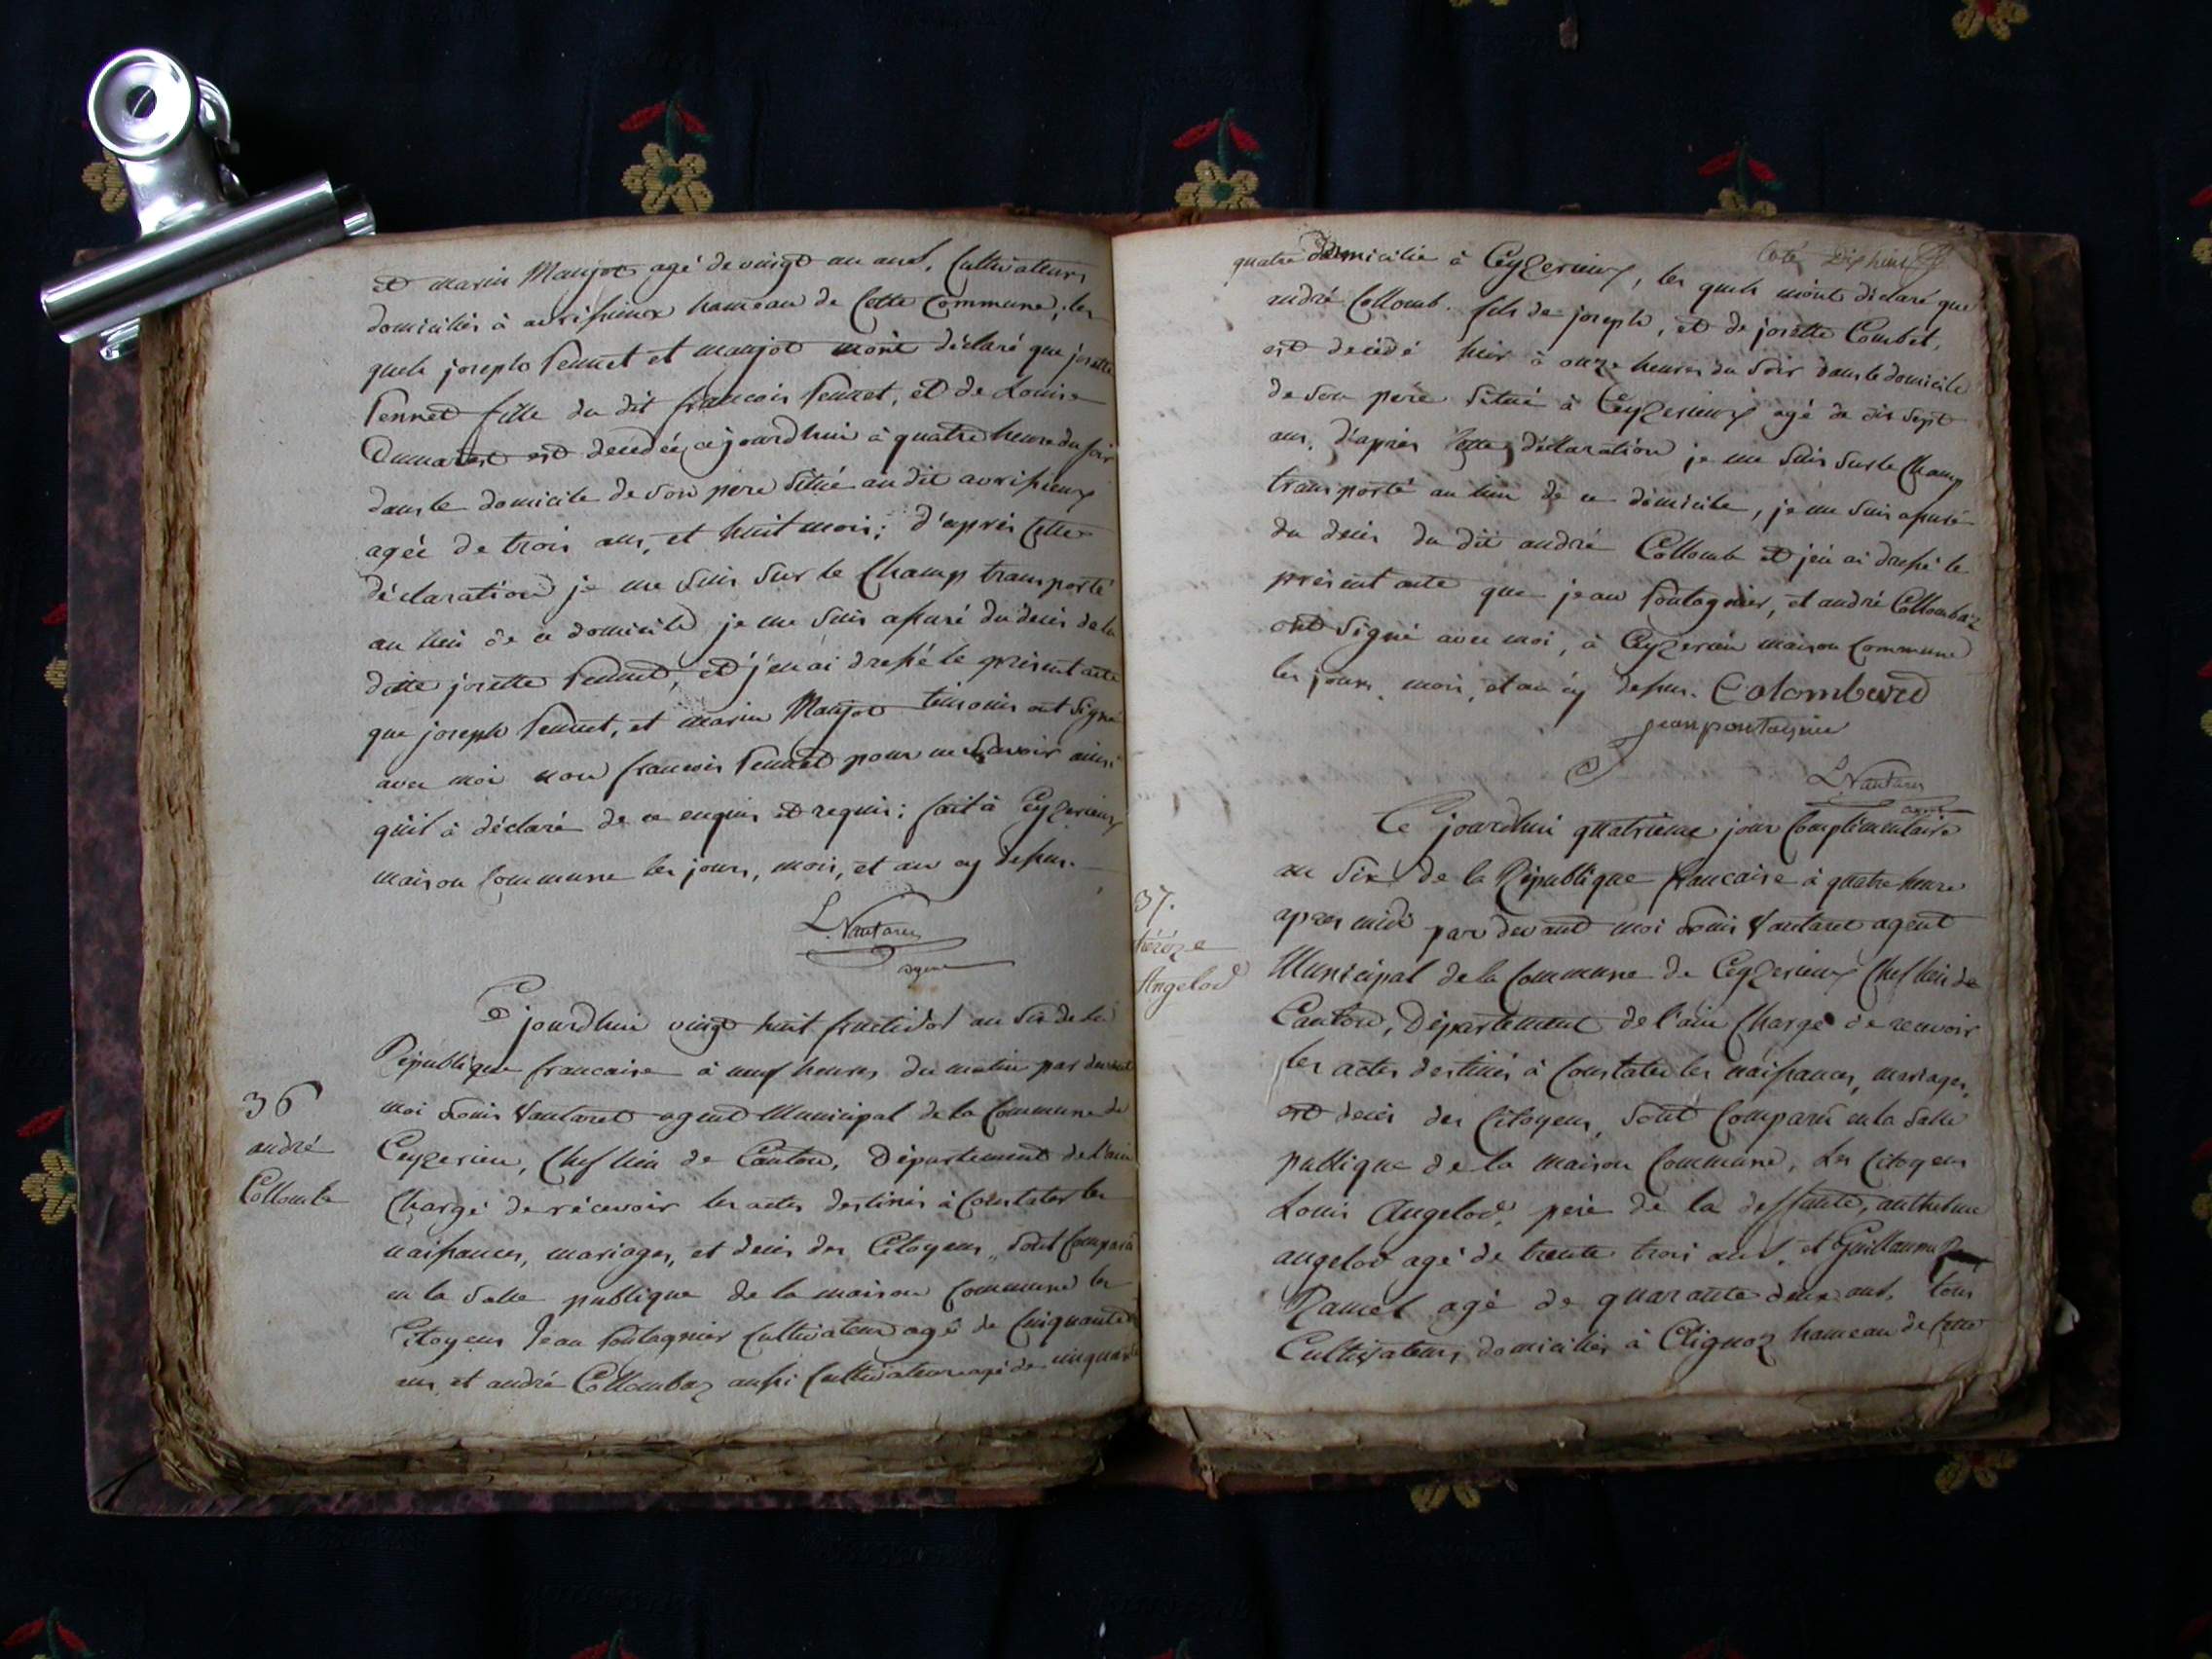 et marin Maujot agé de vingt un ans, Cultivateurs
domiciliés à avrissieux hameau de Cette Commune, les
quels joseph Pennet et maujot m'ont déclaré que josette
Pennet fille du dit francois Pennet, et de Louise
Dumarest est decedée ajourdhui à quatre heure du soir
dans le domicile de son pere situé au dit avrissieux
agée de trois ans, et huit mois; d'après Cette
déclaration je me suis sur le Champ transporté
au lieu de ce domicile je me suis assuré du decès de la
ditte josette Pennet, et j'en ai dressé le présent acte
que joseph Pennet, et marin Maujot temoins ont signé
avec moi non francois Pennet pour ne savoir ainsi
qu'il à déclaré de ce enquis et requis; fait à Ceyzerieux
maison Commune les jours, mois, et an cy dessus.
L. Vautaret
agent
Ce jourdhui vingt huit fructidor an six de la
République francaise à neuf heures du matin par devant
moi Louis Vautaret agent Municipal de la Commune de
Ceyzerieu, Chef lieu de Canton, Département de l'ain
Chargé de récevoir les actes destinés à Constater les
naissances, mariages, et decès des Citoyens, sont Comparu
en la salle publique de la maison Commune les
Citoyens Jean Pontagnier Cultivateur agé de Cinquante
ans et andré Collombaz aussi Cultivateur agé de cinquante
36
andré
Collomb
quatre domicilié à Ceyzerieux, les quels m'ont déclaré que
andré Collomb. fils de joseph, et de josette Combet,
est decédé hier à onze heures du soir dans le domicile
de son père situé à Ceyzerieux agé de dix sept
ans. d'après cette déclaration je me suis sur le Champ
transporté au lieu de ce domicile, je me suis assuré
du decès du dit andré Collomb et j'en ai dressé le
présent acte que jean Pontagnier, et andré Collombaz
ont signé avec moi, à Ceyzerieu maison Commune
les jours, mois, et an cy dessus. Colombard
jean pontagnier
L. Vautaret
agent
37.
thérèze
Angelod
Ce jourdhui quatrieme jour Complémentaire
an six de la République francaise à quatre heure
apres midi par devant moi Louis Vautaret agent
Municipal de la Commune de Ceyzerieux Chef lieu de
Canton, Département de l'ain Chargé de recevoir
les actes destinés à Constater les naissances, mariages,
et decès des Citoyens, sont Comparu en la salle
publique de la maison Commune, Les Citoyens
Louis Angelod, père de la deffunte, anthelme
angelod agé de trente trois ans, et Guillaume
Ramel agé de quarante deux ans, tous
Cultivateurs, domiciliés à Clignoz hameau de Cette